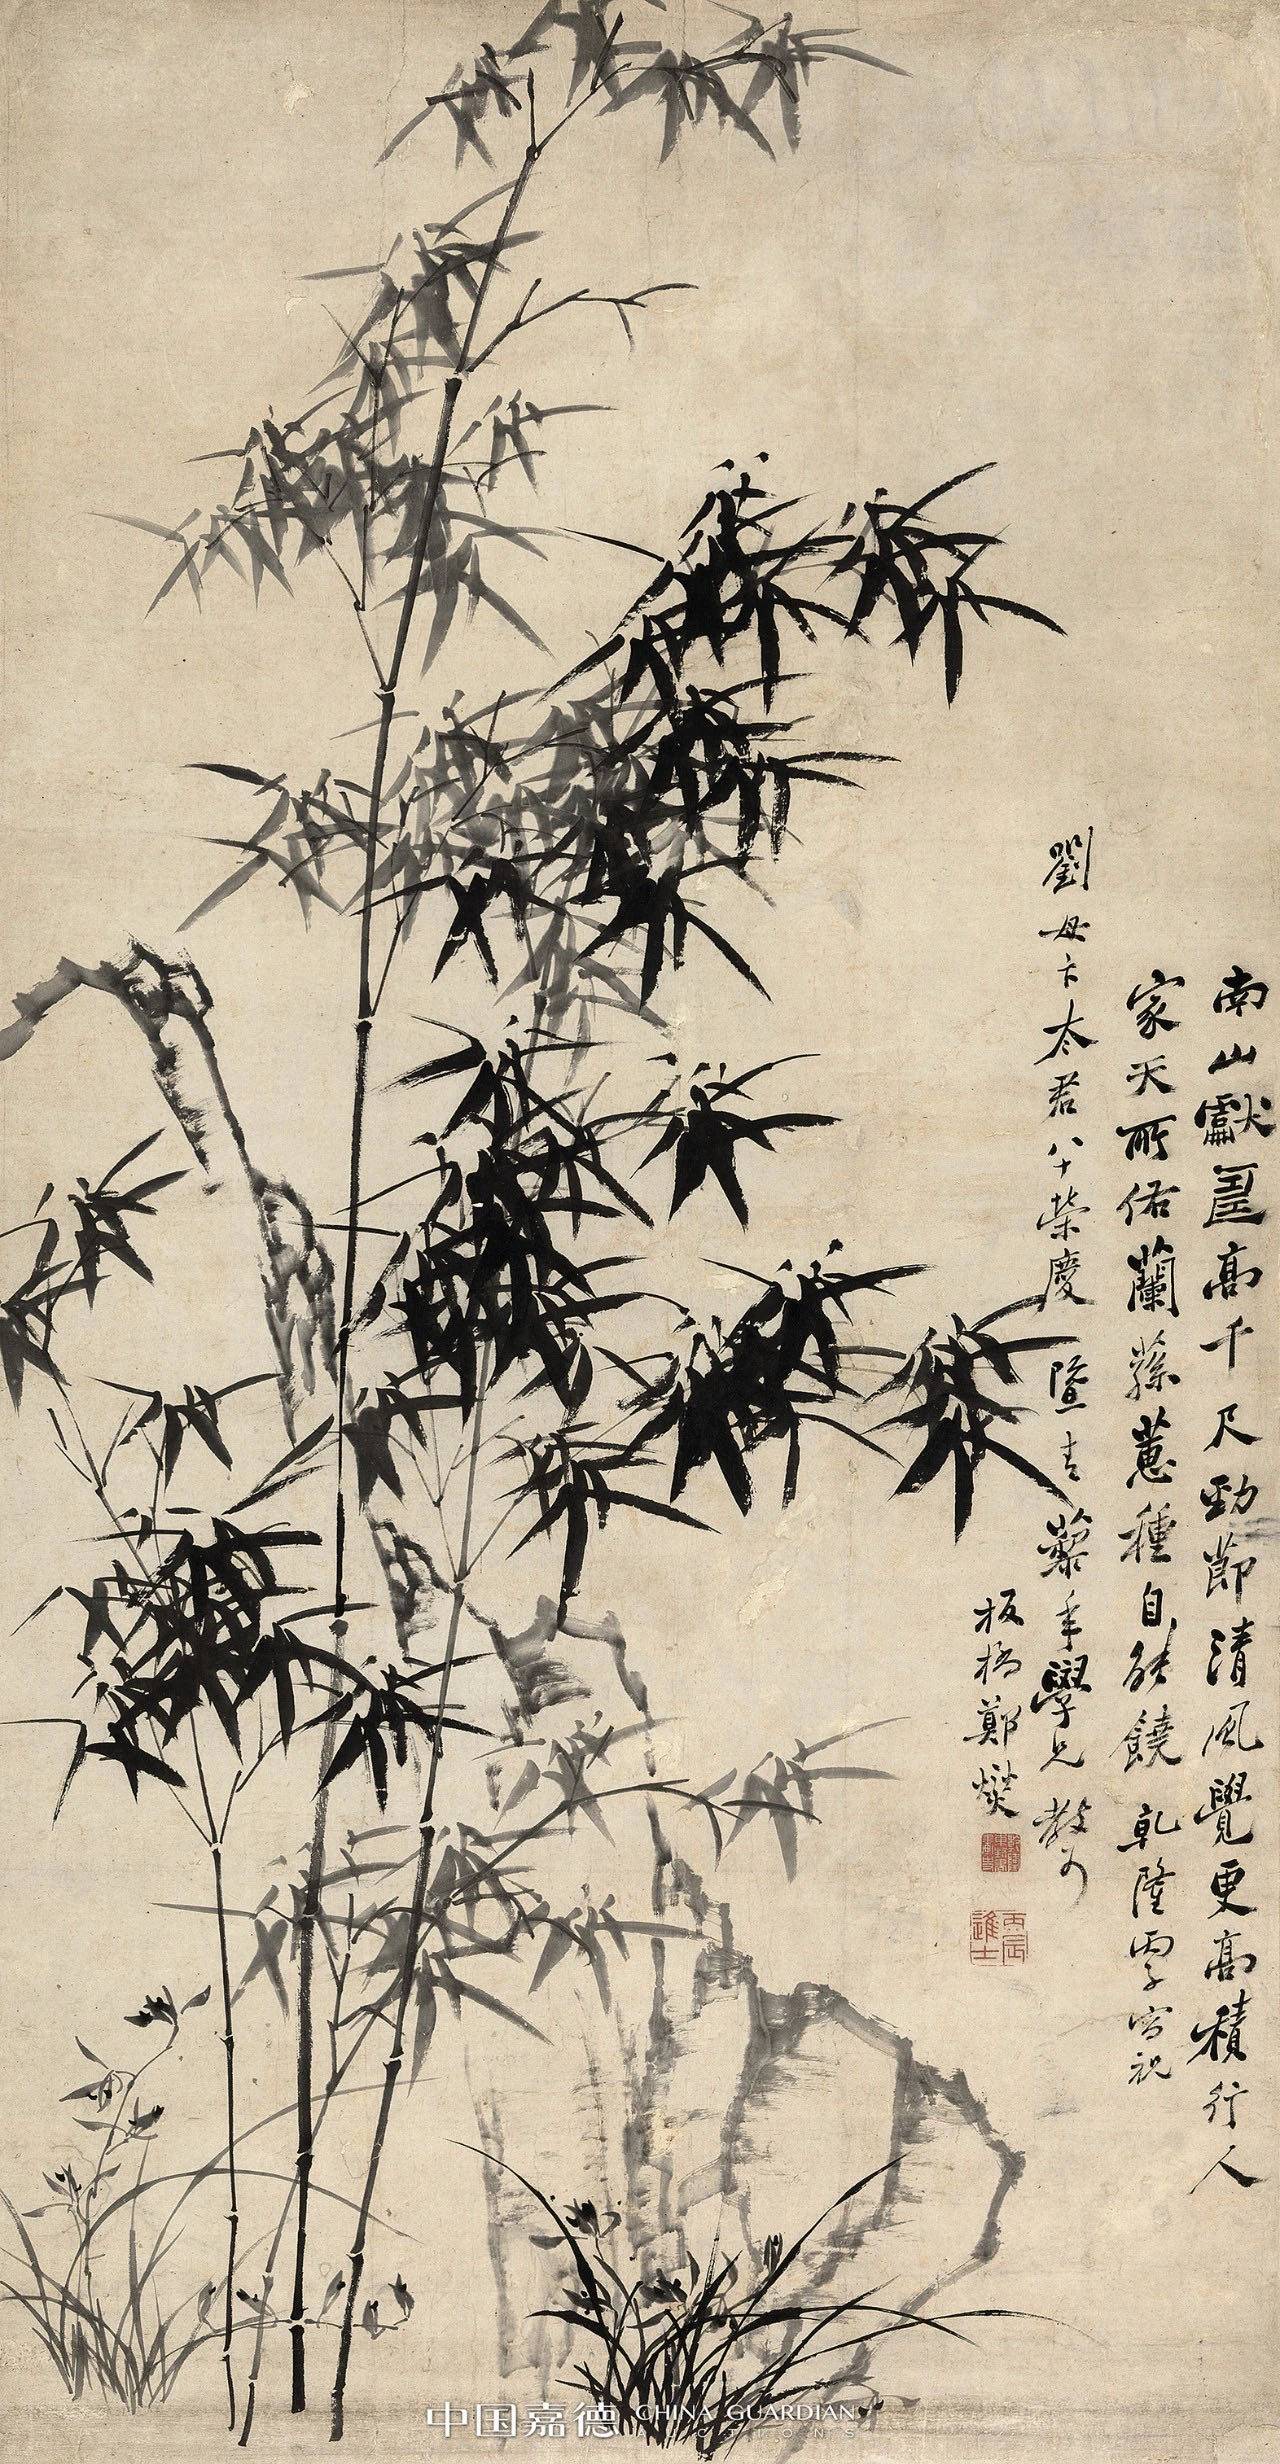 南山獻壽高千尺勁節清風覺更高積行人
家天所佑蘭蓀蕙種自能饒乾隆丙子寫祝
劉母卞太君八十榮慶暨青藜年學兄教可
板橋鄭燮
丙辰進士
中国嘉德 CHINA GUARDIAN
AUCTIONS